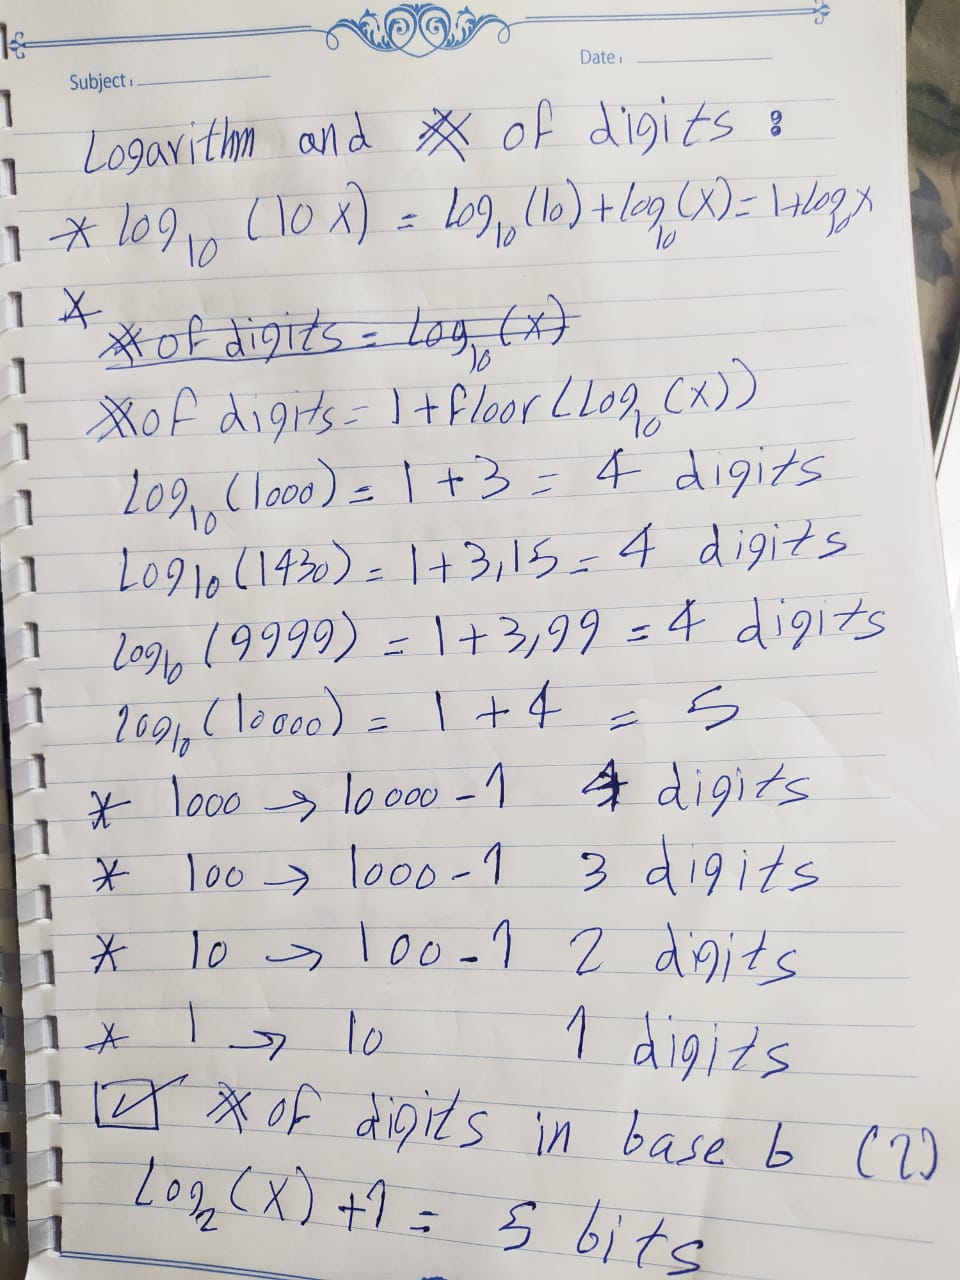 Subject:
Date:
Logarithm and # of digits :
* log₁₀ (10 X) = Log₁₀ (10) + log₁₀ (X) = 1 + log₁₀ X
* # of digits = Log₁₀ (X)
# of digits = 1 + floor (Log₁₀ (X))
Log₁₀ (1000) = 1 + 3 = 4 digits
Log₁₀ (1430) = 1 + 3,15 = 4 digits
log₁₀ (9999) = 1 + 3,99 = 4 digits
log₁₀ (10000) = 1 + 4 = 5
* 1000 → 10000 - 1 4 digits
* 100 → 1000 - 1 3 digits
* 10 → 100 - 1 2 digits
* 1 → 10 1 digits
☑ # of digits in base b (2)
Log₂ (X) + 1 = 5 bits